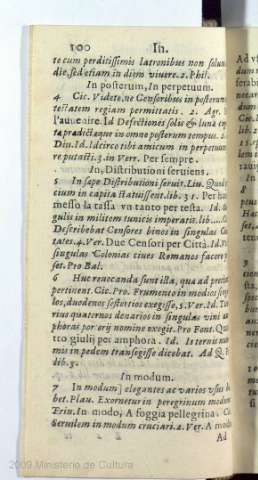 100 In.
te cum perditissimis latronibus non solum
die, sed etiam in diem vivere. 2. Phil.
In posterum, In perpetuum.
4 Cic. Videte, ne Censoribus in posterum
testatem regiam permittatis. 2. Agr. I
l'auuenire. Id Defectiones solis & lunæ
prædictæque in omne posterum tempus. 2.
Diu. Id. Idcirco tibi amicum in perpetuum
re putasti. 3. in Verr. Per sempre.
In, Distributioni seruiens.
5 In sæpe Distributioni seruit. Liu. Quod
cium in capita statuissent. lib. 31. Per ha
messo la tassa vn tanto per testa. Id.
gulis in militem tunicis imperatis. lib.
Describebat Censores binos in singulas Ci
tates. 4. Ver. Due Censori per Città. Id.
singulas Colonias ciues Romanos facere
set. Pro Bal.
6 Huc reuocanda sunt ista, qua ad preti
pertinent. Cic. Pro frumento in modios singu
los, duodenos sestertios exegisse. 5. Ver. Id.
rius quaternos denarios in singulas vini
phoras portorij nomine exegit. Pro Font. Qua
tro giulij per amphora. Id. Is ternis num
mos in pedem transegisse dicebat. Ad Q.
lib. 3.
In modum.
7 In modum] elegantes ac varios vsus
bet. Plau. Exornetur in peregrinum modum
Trin. In modo, A foggia pellegrina. C
Seruilem in modum cruciari. 2. Ver. A modo
Ad
2009 Ministerio de Cultura